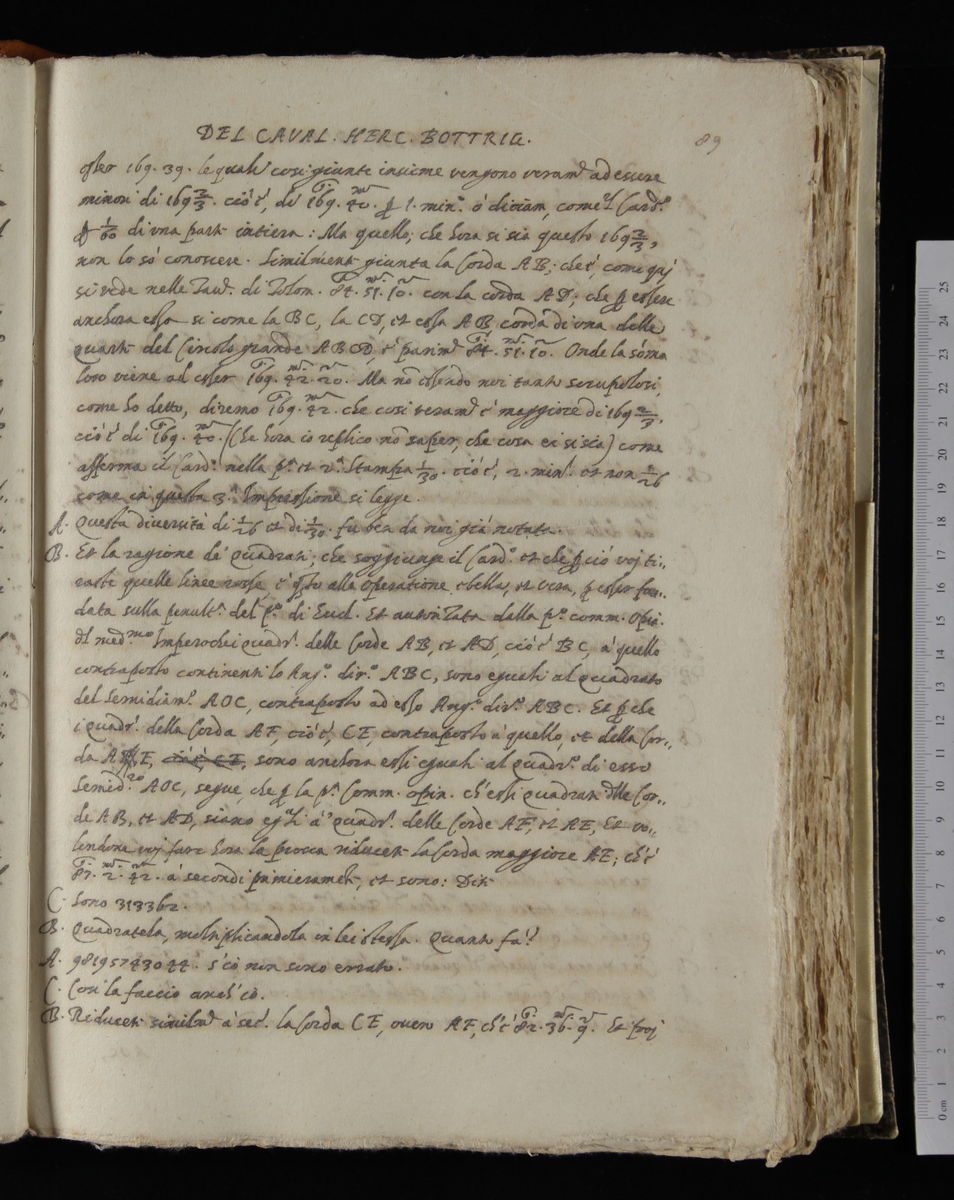 DEL CAVAL. HERC. BOTTRIG. 89
esser 169. 39. le quali cosi giunte insieme vengono veram.e ad essere
minori di 169 2/3. cio è, di 169. 40. p 1. min.o ò diciam, come'l Card.o
1/60 di una parte intiera: Ma quello, che hora si sia questo 169 2/3,
non lo sò conoscere. Similmente giunta la Corda AB; che è, come quj
si vede nelle Tav.e di Tolom. 84. 51. 10. con la corda AD; che p essere
anchora essa si come la BC, la CD, et essa AB, corda di una delle
quarte del Circolo grande ABCD è parim.e 84. 51. 10. Onde la sóma
loro viene ad esser 169. 42. 20. Ma nõ essendo noi tanto scrupolosi,
come ho detto, diremo 169. 42. che cosi veram.e è maggiore di 169 2/3,
cio è di 169. 40. (che hora io replico nõ saper, che cosa ei si sia) come
afferma il Card.o nella p.a et 2.a Stampa 1/30. cio è, 2. min.i et non 1/26
come in questa 3.a Impressione si legge.
A. Questa diversità di 1/26 et di 1/30. fu ben da noi già notata.
B. Et la ragione de' Quadrati, che soggiunge il Card.o et che p ciò voj ti,,
raste quelle linee rosse, è q̃sto alla operatione, e bella, et vera, p esser fon,,
data sulla penult.a del p.o di Eucl. Et autorizata dalla p.a comm. Opin.
dl med.mo Imperoche i quadr.i delle Corde AB, et AD, cio è BC, à quello
contraposto continenti lo Ang.o dir.o ABC, sono eguali al quadrato
del Semidiam.o AOC, contraposto ad esso Ang.o dir.o ABC. Et p che
i Quadr.i della Corda AF, cio è, CE, contraposto à quello, et della Cor,,
da AE, cio è, CE, sono anchora essi eguali al Quadr.o di esso
Semid.ro AOC, segue, che p la p.a Comm. opin. ch'essi Quadrati delle Cor,,
de AB, et AD, siano eg.li a' Quadr.i delle Corde AF, et AE, Et vo,,
lendone voj fare hora la prova riducete la Corda maggiore AE; ch'è
87. 2. 42. a secondi primieramẽte, et sono: Dite
C. Sono 313362.
B. Quadratela, moltiplicandola in lei stessa. Quanto fà?
A. 98195743044. s'io non sono errato.
C. Cosi la faccio anch'io.
B. Riducete similm.e à sec.i la Corda CE, overo AF, ch'è 82. 36. 9. Et poj